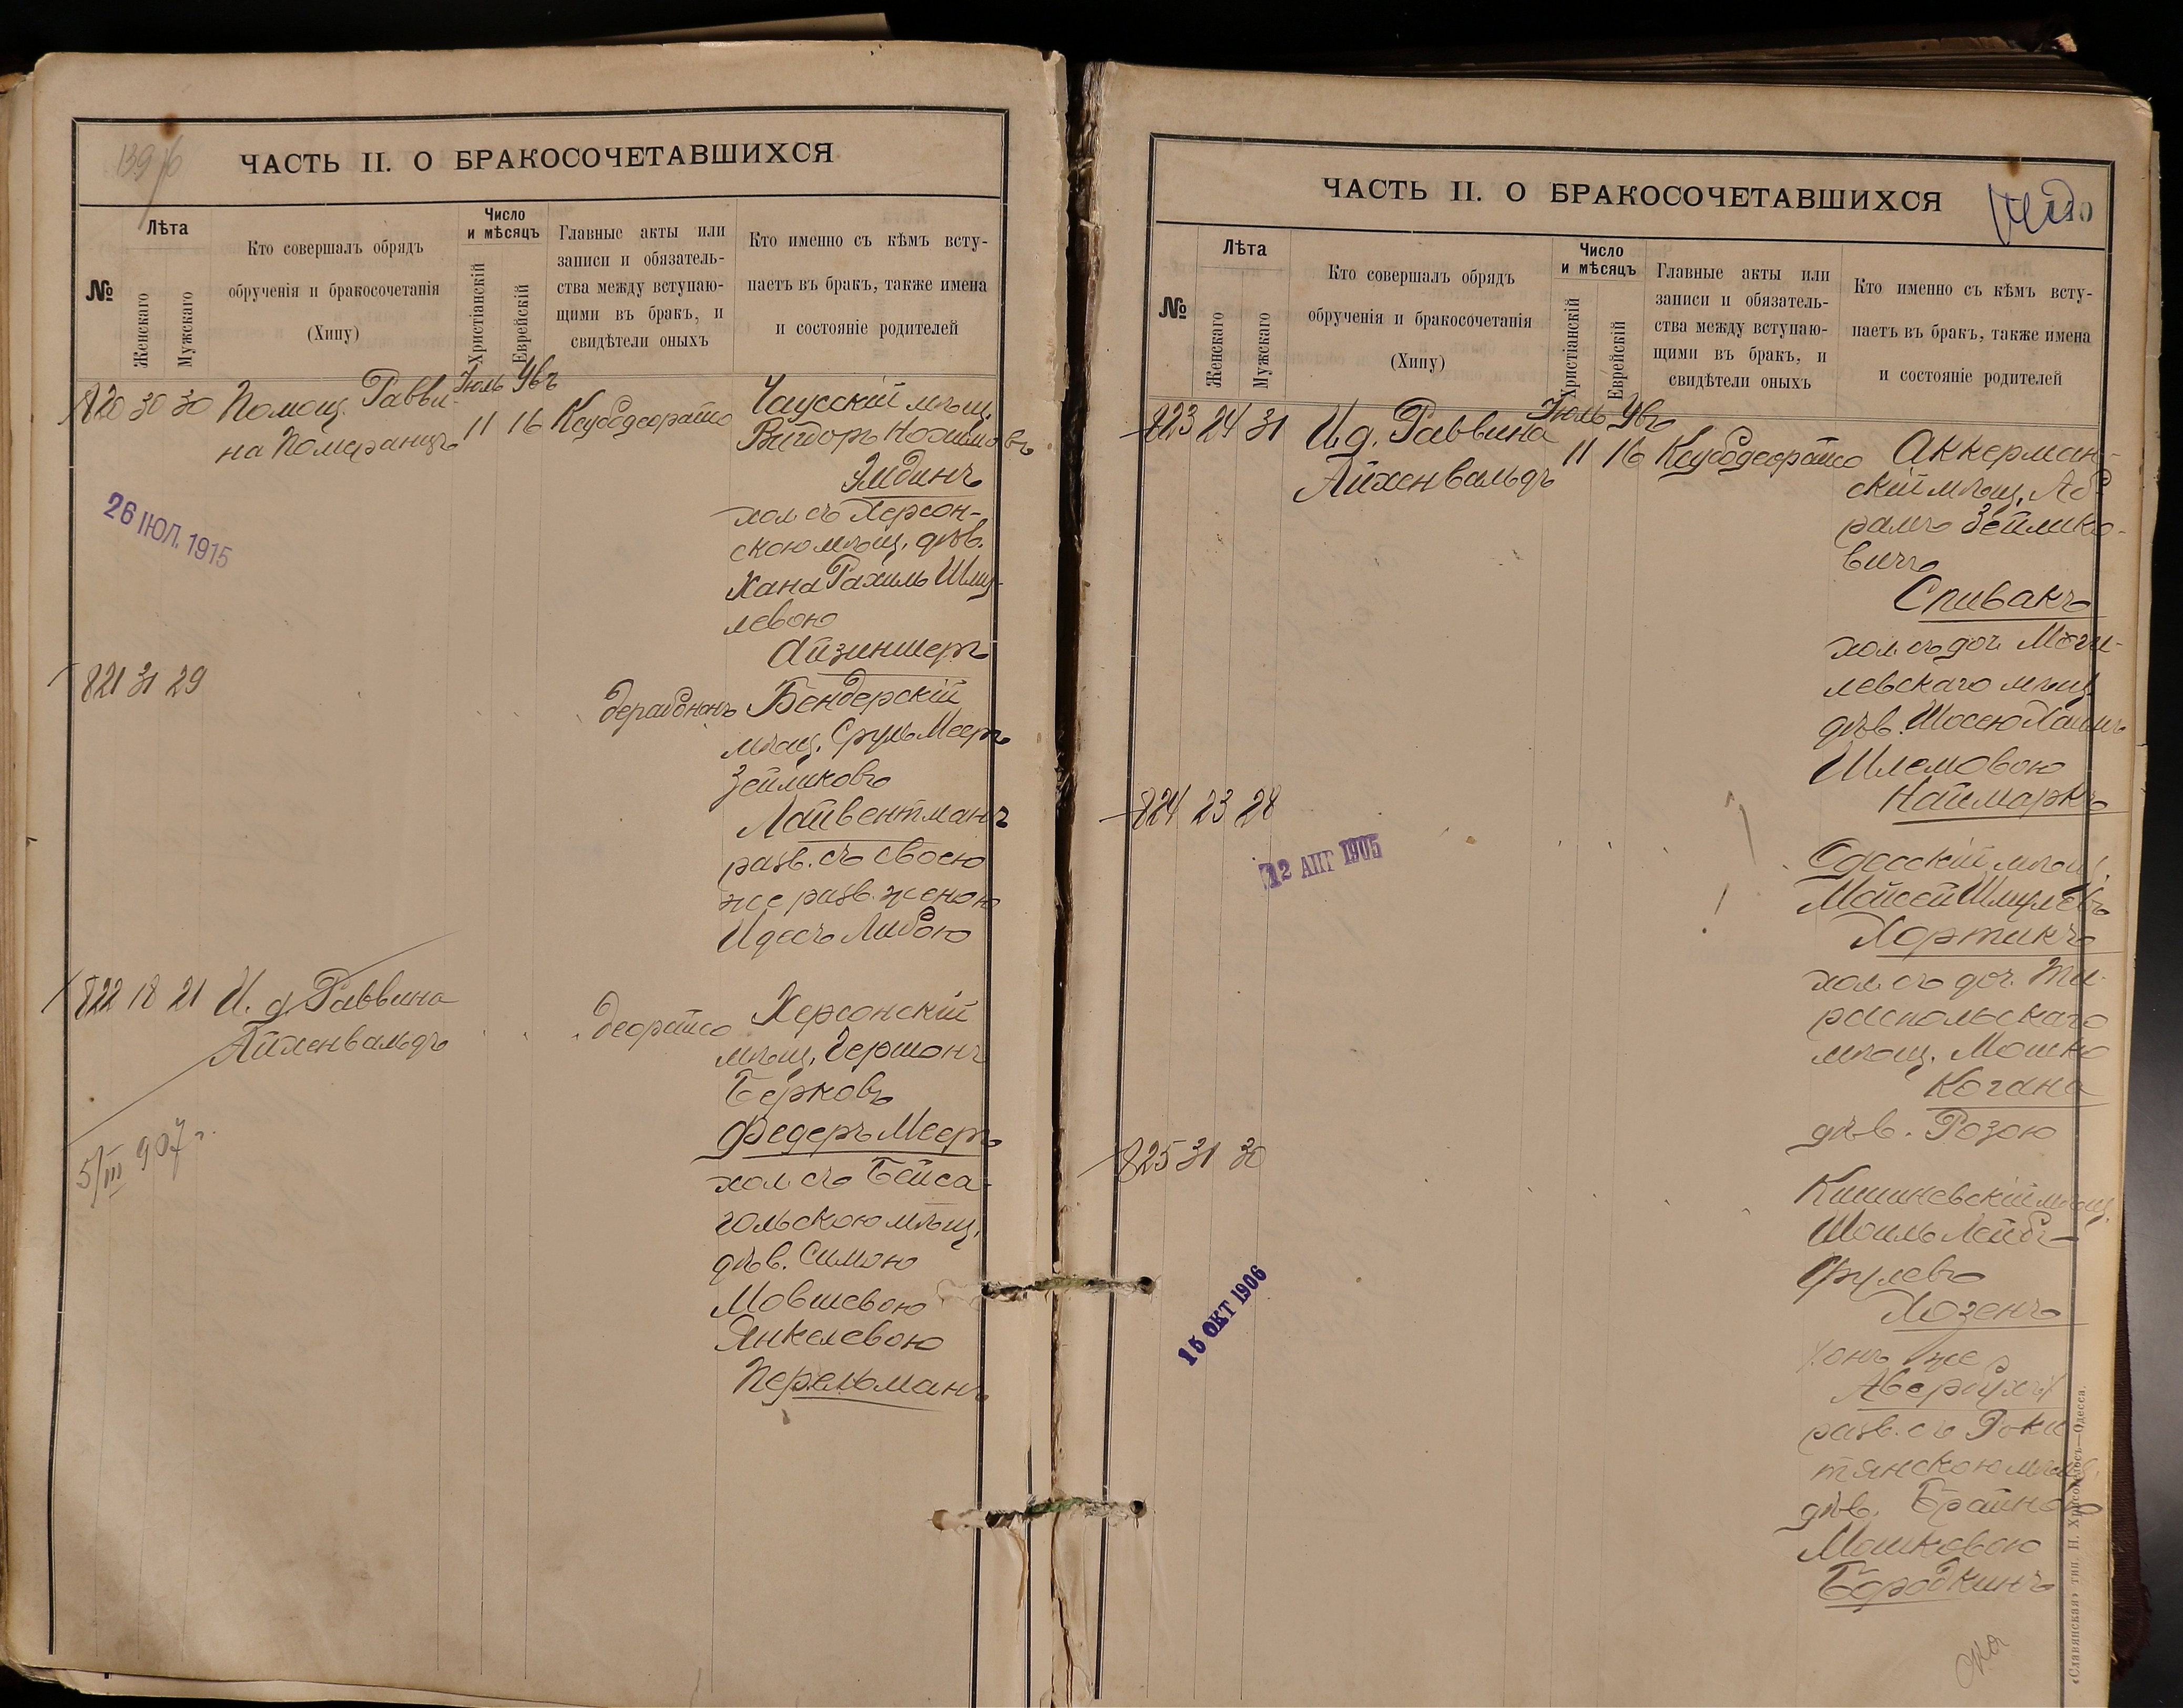 139
ЧАСТЬ II. О БРАКОСОЧЕТАВШИХСЯ
№
Лѣта
Женскаго
Мужскаго
Кто совершалъ обрядъ
обрученія и бракосочетанія
(Хипу)
Число
и мѣсяцъ
Христіанскій
Еврейскій
Главные акты или
записи и обязатель-
ства между вступаю-
щими въ бракъ, и
свидѣтели оныхъ
Кто именно съ кѣмъ всту-
паетъ въ бракъ, также имена
и состояніе родителей
820 30 30 Помощ. Равви-
на Померанцъ
Іюль
11 16
Чаусскій мѣщ.
Вигдоръ Нохимовъ
Элдинъ
хол. съ Херсон-
скою мѣщ. дѣв.
Хана Рахиль Шму-
левою
Айзиншеръ
26 ІЮЛ. 1915
821 31 29
Бендерскій
мѣщ. Сруль Меер
Зейликовъ
Лойвентманъ
разв. съ своею
же разв. женою
Идесъ Либою
822 18 21 И. д. Раввина
Айхенвальдъ
Херсонскій
мѣщ. Гершонъ
Берковъ
Федеръ Меер
хол. съ Бейса-
гольскою мѣщ.
дѣв. Симою
Мовшевою
Янкелевою
Перельманъ
5/III 907 г.
ЧАСТЬ II. О БРАКОСОЧЕТАВШИХСЯ
№
Лѣта
Женскаго
Мужскаго
Кто совершалъ обрядъ
обрученія и бракосочетанія
(Хипу)
Число
и мѣсяцъ
Христіанскій
Еврейскій
Главные акты или
записи и обязатель-
ства между вступаю-
щими въ бракъ, и
свидѣтели оныхъ
Кто именно съ кѣмъ всту-
паетъ въ бракъ, также имена
и состояніе родителей
823 24 31 И д. Раввина
Айхенвальдъ
Іюль
11 16
Аккерман-
скій мѣщ. Аб-
рамъ Зейлико-
вичъ
Спивакъ
хол. съ доч. Моги-
левскаго мѣщ.
дѣв. Шосею Хаимъ
Шлемовою
Наймаркъ
824 23 28
12 АПР 1905
Одесскій мѣщ.
Мойсей Шмулевъ
Хортикъ
хол. съ доч. Ти-
распольскаго
мѣщ. Мошко
Когана
дѣв. Розою
825 31 30
15 ОКТ 1906
Кишиневскій мѣщ.
Шоиль Лейбъ
Срулевъ
Хозенъ
онъ же
Авербухъ
разв. съ Роки
тянскою мѣщ.
дѣв. Брайною
Мошковою
Бородкинъ
«Славянская» тип. Н. Хрисогелосъ—Одесса.